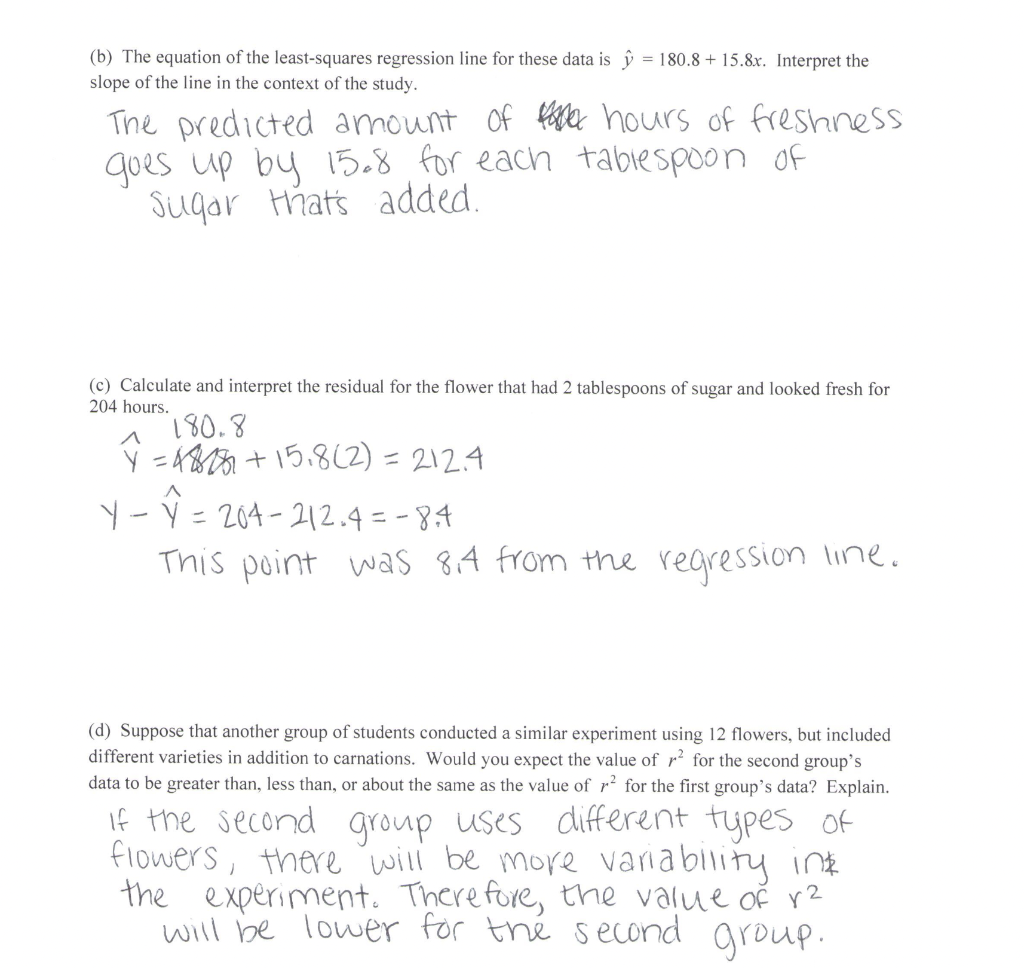 (b) The equation of the least-squares regression line for these data is ŷ = 180.8 + 15.8x. Interpret the
slope of the line in the context of the study.
The predicted amount of hours of freshness
goes up by 15.8 for each tablespoon of
sugar that's added.
(c) Calculate and interpret the residual for the flower that had 2 tablespoons of sugar and looked fresh for
204 hours.
180.8
ŷ = + 15.8(2) = 212.4
y - ŷ = 204 - 212.4 = -8.4
This point was 8.4 from the regression line.
(d) Suppose that another group of students conducted a similar experiment using 12 flowers, but included
different varieties in addition to carnations. Would you expect the value of r² for the second group's
data to be greater than, less than, or about the same as the value of r² for the first group's data? Explain.
If the second group uses different types of
flowers, there will be more variability in
the experiment. Therefore, the value of r²
will be lower for the second group.